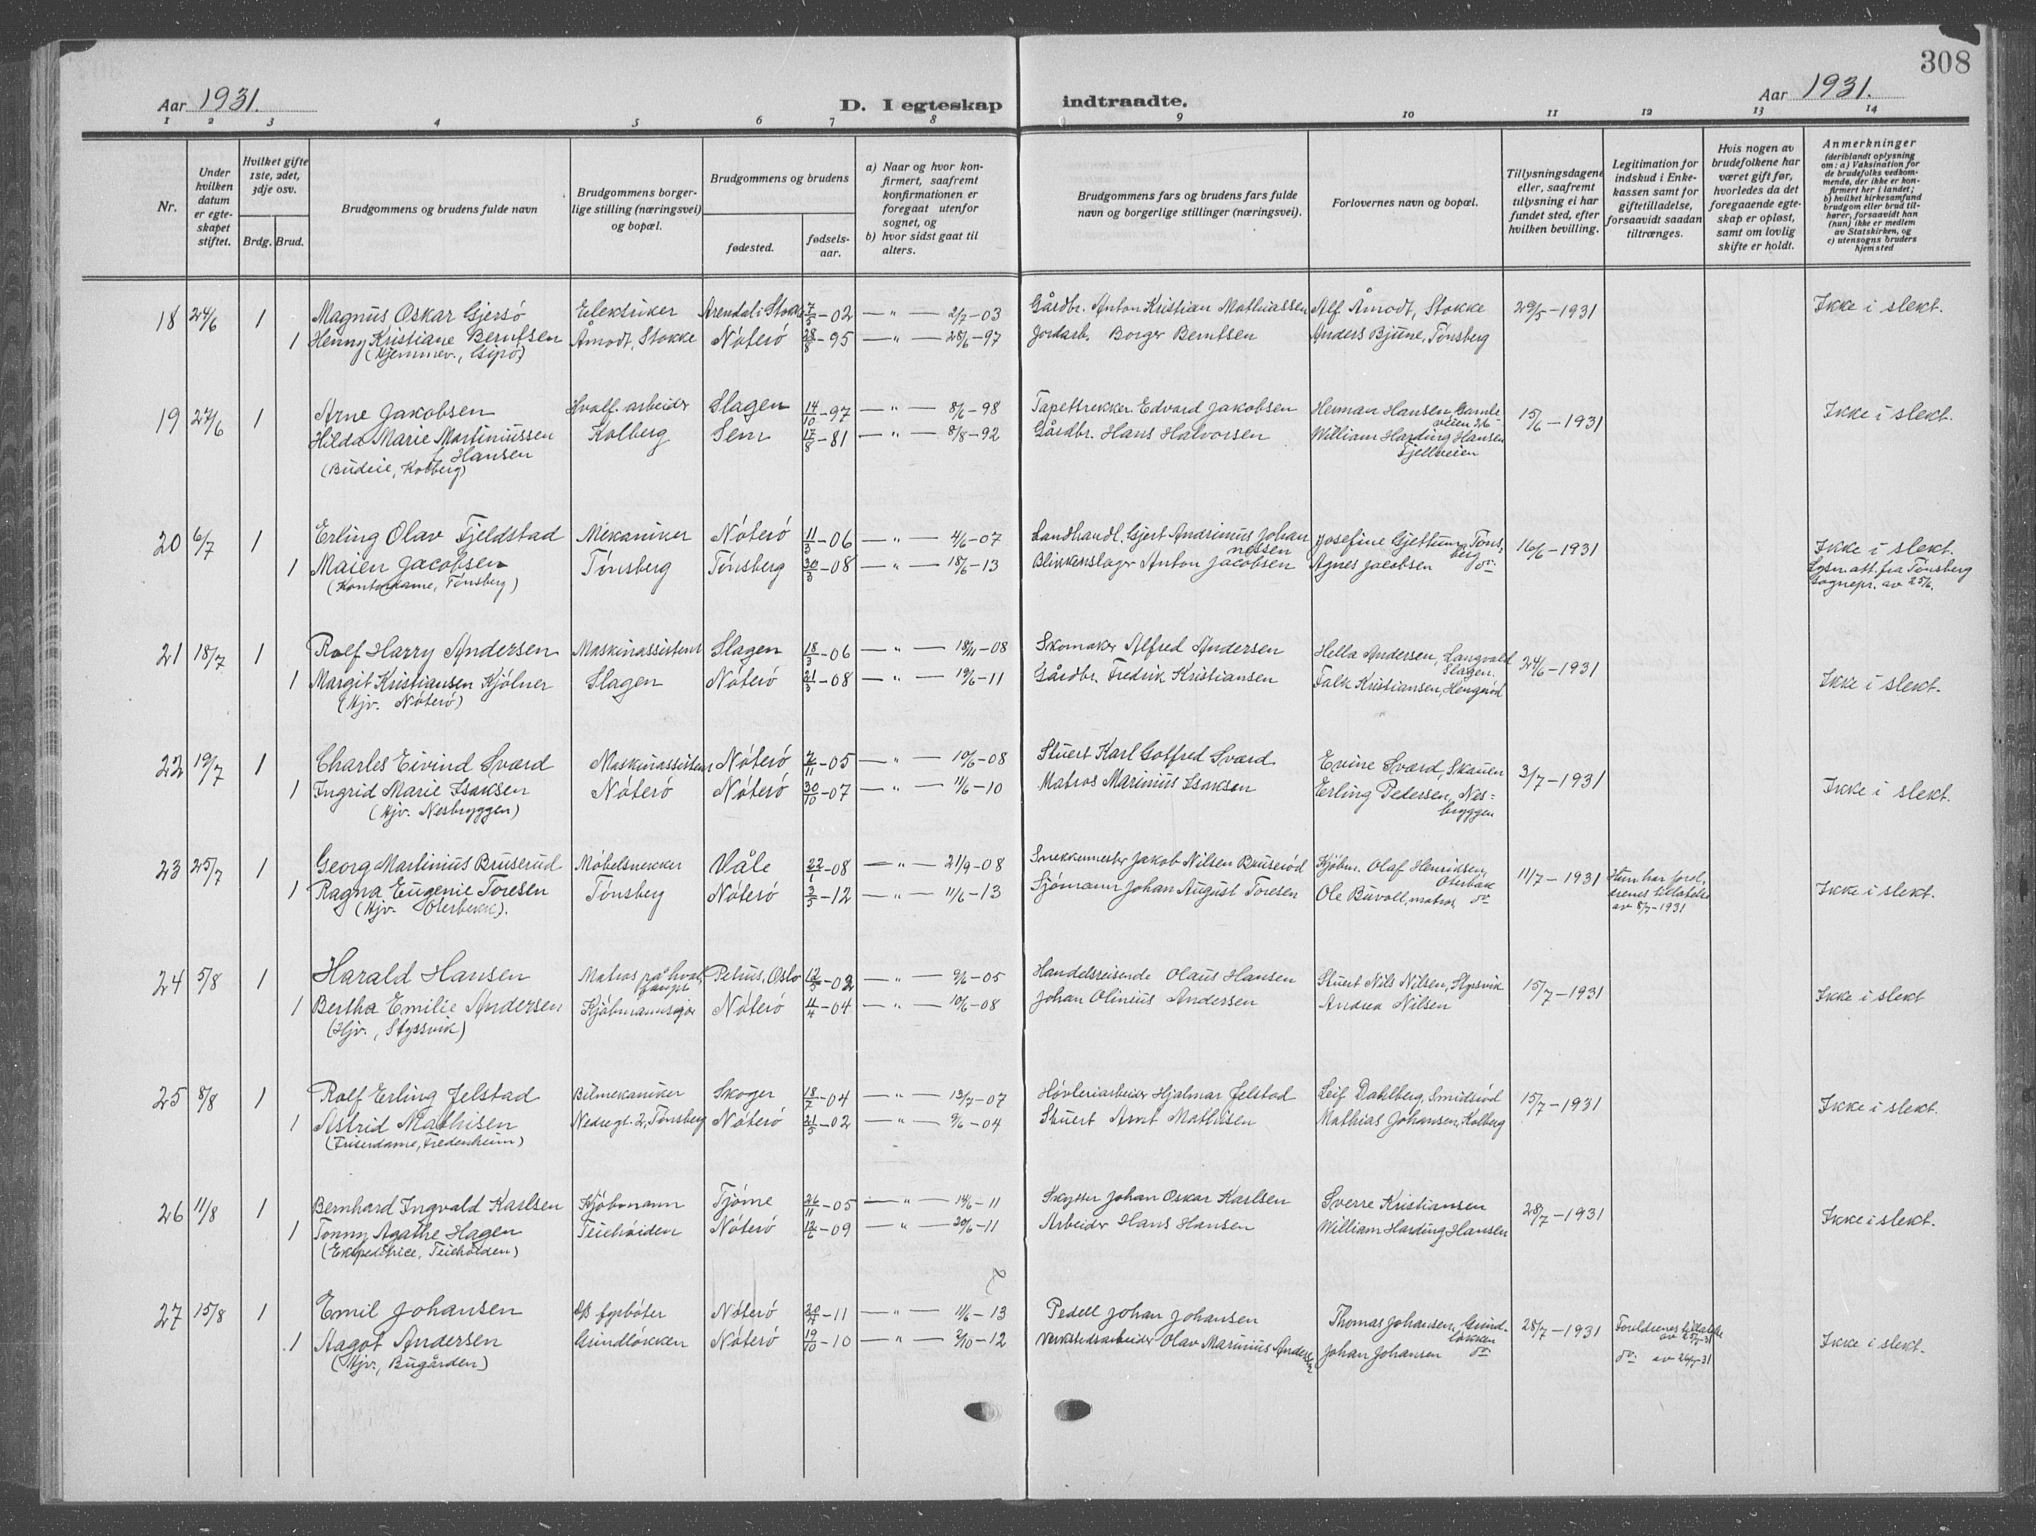 308
Aar 1931.
D. I egteskap indtraadte.
Aar 1931.
1 2 3 4 5 6 7 8 9 10 11 12 13 14
Nr.
Under hvilken datum er egteskapet stiftet.
Hvilket gifte 1ste, 2det, 3dje osv.
Brdg. Brud.
Brudgommens og brudens fulde navn
Brudgommens borgerlige stilling (næringsvei) og bopæl.
Brudgommens og brudens
fødested.
fødselsaar.
a) Naar og hvor konfirmert, saafremt konfirmationen er foregaat utenfor sognet, og
b) hvor sidst gaat til alters.
Brudgommens fars og brudens fars fulde navn og borgerlige stillinger (næringsvei).
Forlovernes navn og bopæl.
Tillysningsdagene eller, saafremt tillysning ei har fundet sted, efter hvilken bevilling.
Legitimation for indskud i Enkekassen samt for giftetilladelse, forsaavidt saadan tiltrænges.
Hvis nogen av brudefolkene har været gift før, hvorledes da det foregaaende egteskap er opløst, samt om lovlig skifte er holdt.
Anmerkninger
(deriblandt oplysning om: a) Vaksination for de brudefolks vedkommende, der ikke er konfirmert her i landet; b) hvilket kirkesamfund brudgom eller brud tilhører, forsaavidt han (hun) ikke er medlem av Statskirken, og c) utensogns bruders hjemsted
18 24/6 1 Magnus Oskar Gjersø Elektriker Arendal i Stokke 7/5-02 — " — 2/7-03 Gårdbr. Anton Kristian Mathiassen Alf Åmodt, Stokke 29/5-1931 Ikke i slekt.
1 Henny Kristiane Berntsen Åmodt, Stokke Nøterø 28/8-95 — " — 28/6-97 Jordarb. Borger Berntsen Anders Bjune, Tønsberg
(Hjemmev., Gipø)
19 27/6 1 Arne Jakobsen Hvalf. arbeider Slagen 14/10-97 — " — 8/6-98 Tapettrekker Edvard Jakobsen Herman Hansen, Gamleveien 26 15/6-1931 Ikke i slekt.
Hilda Marie Martiniussen Kolberg Sem 17/8-81 — " — 8/8-92 Gårdbr. Hans Halvorsen William Harding Hansen
f. Hansen Fjellveien
(Budeie, Kolberg)
20 6/7 1 Erling Olav Fjeldstad Mekaniker Nøterø 11/3-06 — " — 4/6-07 Landhandl. Gjert Andrinius Johannessen Josefine Gjettum, Tønsberg 16/6-1931 Ikke i slekt.
1 Maien Jacobsen Tønsberg Tønsberg 30/3-08 — " — 18/6-13 Blikkenslager Anton Jacobsen Agnes Jacobsen do Lysn. att. fra Tønsberg
(Kontordame, Tønsberg) Sognepr. av 25/6.
21 18/7 1 Rolf Harry Andersen Maskinassistent Slagen 18/3-06 — " — 18/11-08 Skomaker Alfred Andersen Hella Andersen, Langvald Slagen. 24/6-1931
1 Margit Kristiansen Kjølner Slagen Nøterø 21/3-08 — " — 19/6-11 Gårdbr. Fredrik Kristiansen Falk Kristiansen, Hengsrød Ikke i slekt.
(Hjv. Nøterø)
22 19/7 1 Charles Eivind Sværd Maskinassistent Nøterø 2/11-05 — " — 10/6-08 Stuert Karl Gotfred Sværd Evine Sværd, Skauen 3/7-1931
1 Ingrid Marie Isaksen Nøterø Nøterø 30/10-07 — " — 11/6-10 Matros Marinius Isaksen Erling Pedersen, Nesbryggen Ikke i slekt.
(Hjv. Nesbryggen)
23 25/7 1 Georg Martinius Bruserud Møbelsnekker Våle 22/1-08 — " — 21/9-08 Snekkemester Jakob Nilsen Bruserød Kjøbm. Olaf Henriksen, Oterbæk 11/7-1931 Hun har foreldrenes tillatelse
1 Ragna Eugenie Toresen Tønsberg Nøterø 3/5-12 — " — 11/6-13 Sjømann Johan August Toresen Ole Buvoll, matros, do av 8/7-1931 Ikke i slekt.
(Hjv. Oterbekk).
24 5/8 1 Harald Hansen Matros på hvalfanger Petrus, Oslo 12/5-02 — " — 9/6-05 Handelsreisende Olaus Hansen Stuert Nils Nilsen, Styrsvik 15/7-1931
1 Bertha Emilie Andersen Nøterø 4/4-04 — " — 10/6-08 Johan Olinius Andersen Andrea Nilsen Ikke i slekt
(Hjv., Styssvik)
25 8/8 1 Rolf Erling Jelstad Bilmekaniker Skoger 18/7-04 — " — 13/7-07 Høvleriarbeider Hjalmar Jelstad Leif Dahlberg, Smidsrød 15/7-1931
1 Astrid Mathisen Nedregt. 2, Tønsberg Nøterø 21/5-02 — " — 9/6-04 Stuert Arnt Mathisen Mathias Johansen, Kolberg Ikke i slekt.
(Friserdame, Fredenheim)
26 11/8 1 Bernhard Ingvald Karlsen Kjøbmann Tjøme 26/11-05 — " — 14/6-11 Skytter Johan Oskar Karlsen Sverre Kristiansen 28/7-1931
1 Tonny Agathe Hagen Teiehøiden Nøterø 12/6-09 — " — 20/6-11 Arbeider Hans Hansen William Harding Hansen Ikke i slekt.
(Ekspeditrice, Teiehøiden)
27 15/8 1 Emil Johansen D/S fyrbøter Nøterø 20/4-11 — " — 11/6-13 Pedell Johan Johansen Thomas Johansen, Grindløkken 28/7-1931 Foreldrenes tillatelse av 25/7-31
1 Aagot Andersen Grindløkken Nøterø 19/10-10 — " — 2/10-12 Verkstedsarbeider Olav Marinius Andersen Johan Johansen do do av 26/7-31 Ikke i slekt.
(Hjv., Bugården)